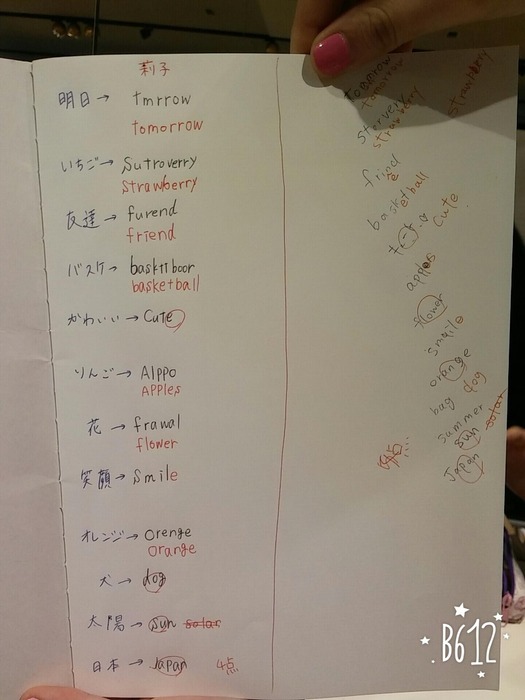 莉子
明日→ tmrrow
tomorrow
いちご→ Sutroverry
Strawberry
友達→ furend
friend
バスケ→ basktiboor
basketball
かわいい→ Cute
りんご→ Alppo
APPles
花→ frawal
flower
笑顔→ Smile
オレンジ→ orenge
orange
犬→ dog
太陽→ sun solar
日本→ Japan
45
tommorow
tomorrow
strawberry
strawberry
frind
re
basketball
cute
apples
flower
smaile
orange
bag dog
summer
sun solar
Japan
B612